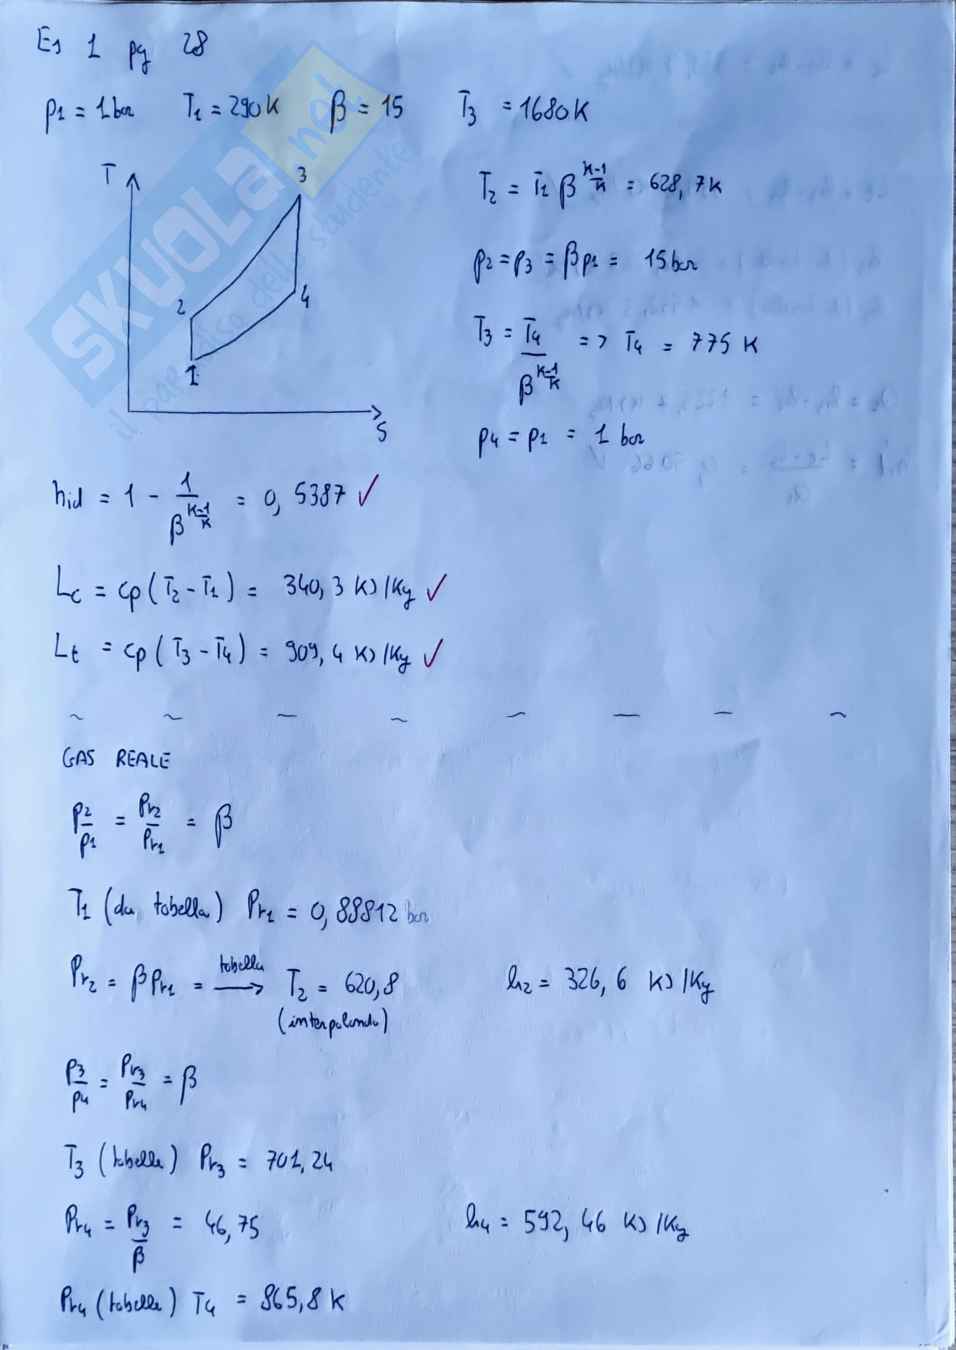 Es 1 pg 28
p1 = 1 bar T1 = 290 K β = 15 T3 = 1680 K
T
3
2
4
1
S
T2 = T1 β^(k-1/k) = 628,7 K
p2 = p3 = β p1 = 15 bar
T3 = T4 / β^(k-1/k) => T4 = 775 K
p4 = p1 = 1 bar
ηid = 1 - 1 / β^(k-1/k) = 0,5387 ✓
Lc = cp (T2 - T1) = 340,3 KJ/Kg ✓
Lt = cp (T3 - T4) = 909,4 KJ/Kg ✓
GAS REALE
p2/p1 = Pr2/Pr1 = β
T1 (da tabella) Pr1 = 0,88812 bar
Pr2 = β Pr1 = tabella → T2 = 620,8 h2 = 326,6 KJ/Kg
(interpolando)
p3/p4 = Pr3/Pr4 = β
T3 (tabella) Pr3 = 701,24
Pr4 = Pr3/β = 46,75 h4 = 592,46 KJ/Kg
Pr4 (tabella) T4 = 865,8 K
SKUOLA.net